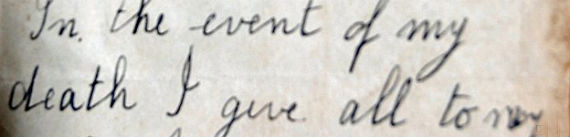 In. the event of my
death I give. all to my